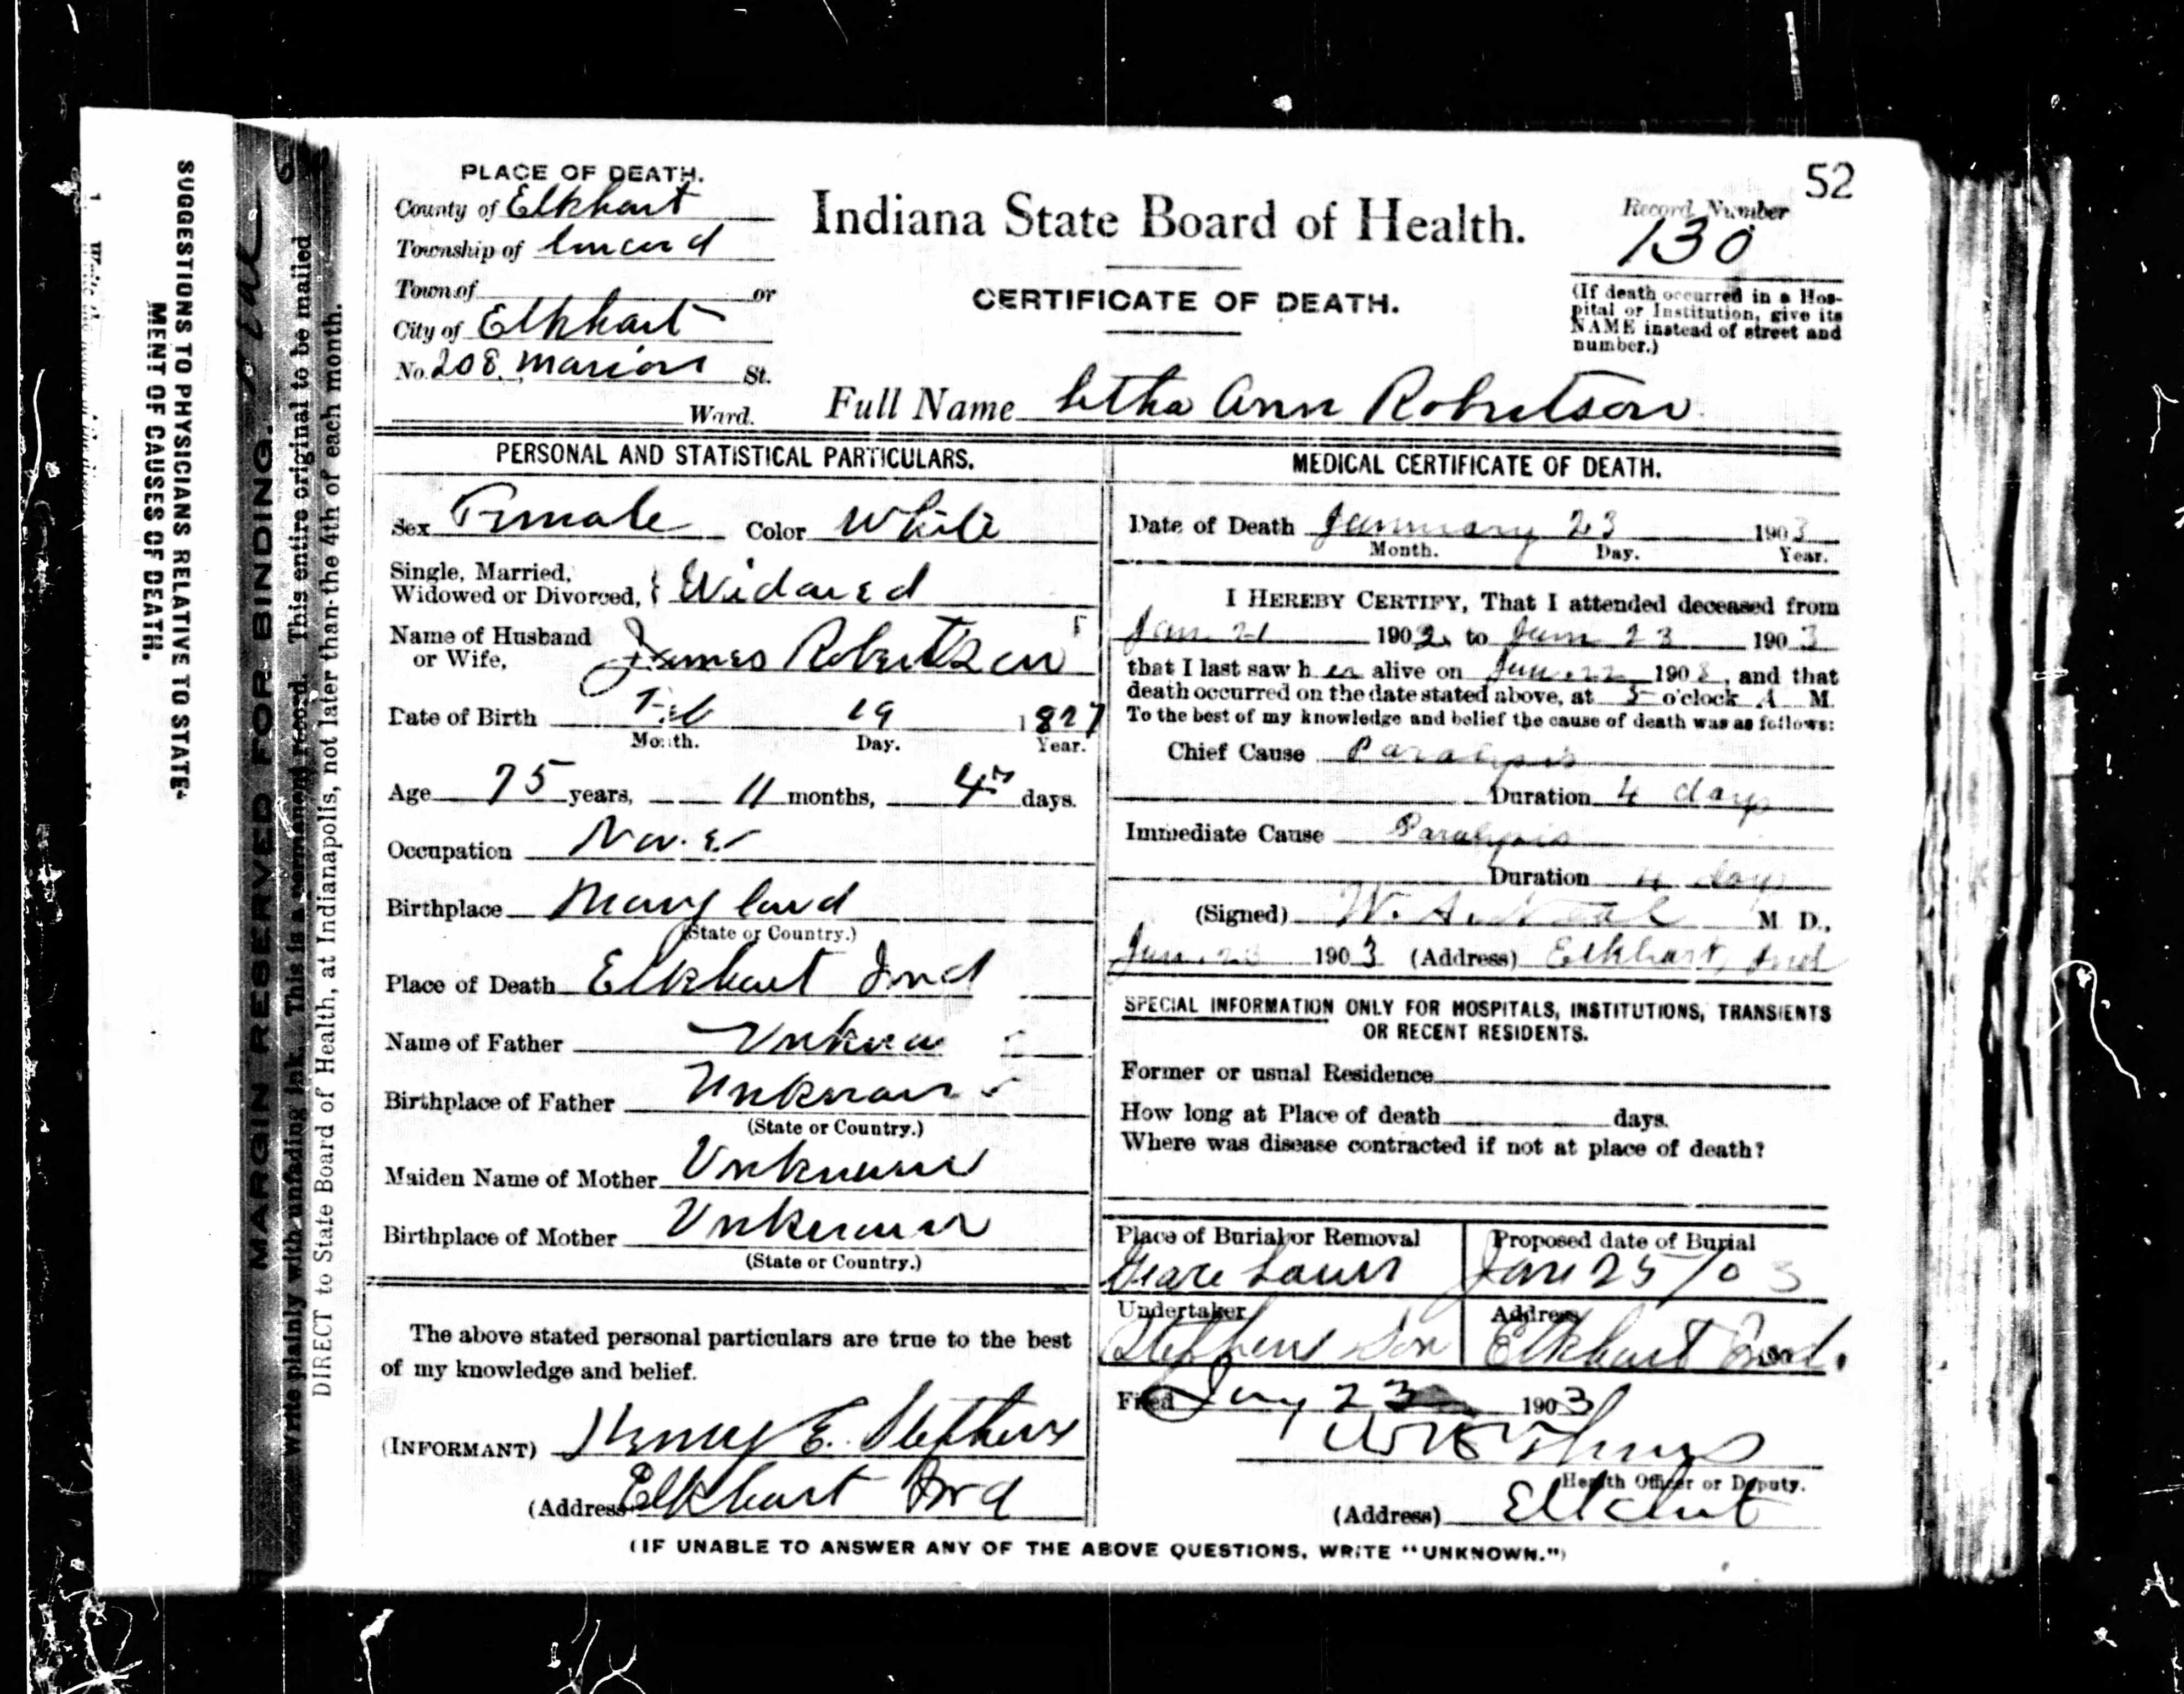 52
PLACE OF DEATH.
County of Elkhart
Township of
Town of or
City of Elkhart
No. 208 Marion St.
Ward.
Indiana State Board of Health.
CERTIFICATE OF DEATH.
Record Number
130
(If death occurred in a Hos-
pital or Institution, give its
NAME instead of street and
number.)
Full Name Ann Robertson
PERSONAL AND STATISTICAL PARTICULARS.
Sex Female Color White
Single, Married,
Widowed or Divorced, Widowed
Name of Husband
or Wife, James Robertson
Date of Birth Feb 19 1827
Month. Day. Year.
Age 75 years, 11 months, 4 days.
Occupation
Birthplace Maryland
(State or Country.)
Place of Death Elkhart Ind
Name of Father Unknown
Birthplace of Father Unknown
(State or Country.)
Maiden Name of Mother Unknown
Birthplace of Mother Unknown
(State or Country.)
The above stated personal particulars are true to the best
of my knowledge and belief.
(INFORMANT) Henry E. Stephens
(Address) Elkhart Ind
MEDICAL CERTIFICATE OF DEATH.
Date of Death January 23 1903
Month. Day. Year.
I HEREBY CERTIFY, That I attended deceased from
Jan 21 1902 to Jan 23 1903
that I last saw her alive on Jan 22 190 , and that
death occurred on the date stated above, at 5 o'clock A M.
To the best of my knowledge and belief the cause of death was as follows:
Chief Cause Paralysis
Duration 4 days
Immediate Cause Paralysis
Duration 4 days
(Signed) W. A. Neal M D.,
Jan. 1903 (Address) Elkhart, Ind
SPECIAL INFORMATION ONLY FOR HOSPITALS, INSTITUTIONS, TRANSIENTS
OR RECENT RESIDENTS.
Former or usual Residence
How long at Place of death days.
Where was disease contracted if not at place of death?
Place of Burial or Removal
Proposed date of Burial
Jan 25/03
Undertaker
Stephens Son
Address
Elkhart Ind.
Filed Jany 23 1903
Health Officer or Deputy.
(Address) Elkhart
(IF UNABLE TO ANSWER ANY OF THE ABOVE QUESTIONS, WRITE "UNKNOWN.")
SUGGESTIONS TO PHYSICIANS RELATIVE TO STATE-
MENT OF CAUSES OF DEATH.
MARGIN RESERVED FOR BINDING.
Write plainly with unfading ink. This is a permanent record. This entire original to be mailed
DIRECT to State Board of Health, at Indianapolis, not later than the 4th of each month.